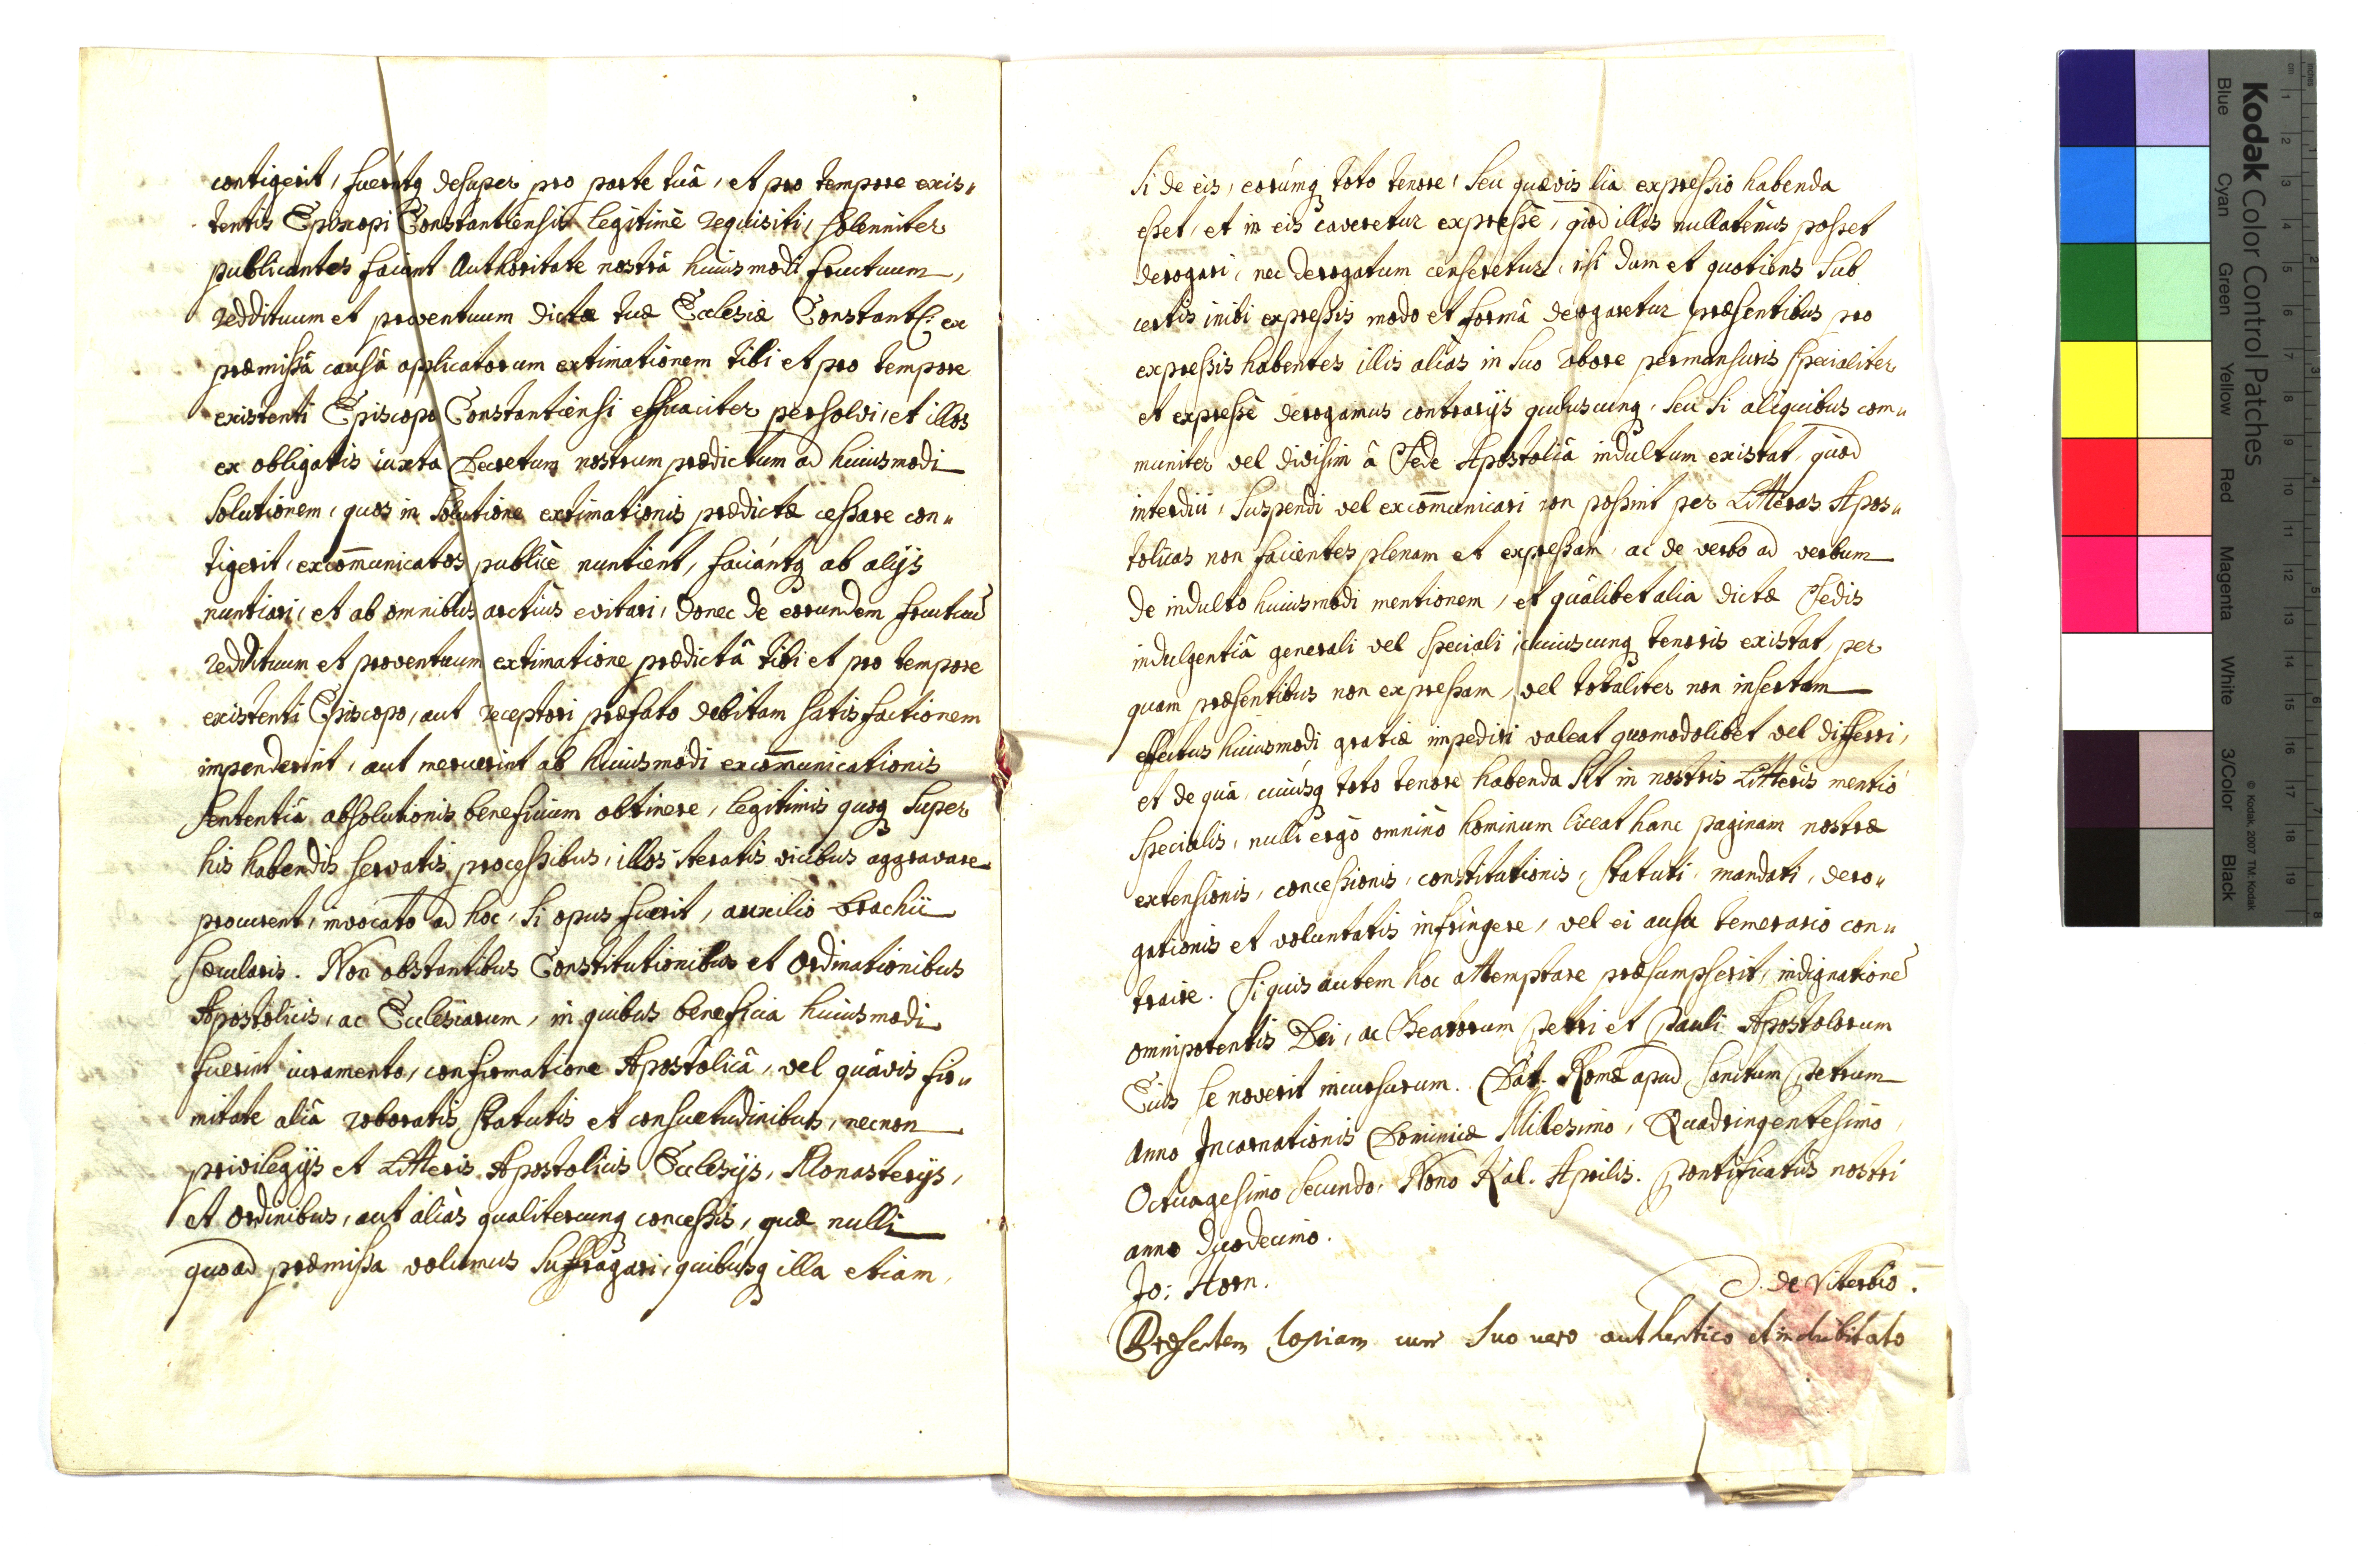 contigerit, fuerintq desuper pro parte tuâ, et pro tempore exis„
tentis Episcopi Constantiensis legitimè requisiti, solenniter
publicantes faciant Authoritate nostrâ huiusmodi fructuum,
reddituum et proventuum dictæ tuæ Ecclesiæ Constant: ex
præmissâ causâ applicatorum extimationem tibi et pro tempore
existenti Episcopo Constantiensi efficaciter persolvi, et illos
ex obligatis iuxta Decretum nostrum prædictum ad huiusmodi
solutionem, quos in solutione extimationis prædictæ cessare con„
tigerit, excom̄unicatos publicè nuntient, faciántq ab alijs
nuntiari, et ab omnibus arctiùs evitari, donec de eorundem fructuū
reddituum et proventuum extimatione prædictâ tibi et pro tempore
existenti Episcopo, aut receptori præfato debitam satisfactionem
impenderint, aut meruerint ab huiusmodi excom̄unicationis
sententiâ absolutionis beneficium obtinere, legitimis quoq super
his habendis servatis processibus, illos iteratis vicibus aggravare
procurent, invocato ad hoc, si opus fuerit, auxilio brachii
sæcularis. Non obstantibus Constitutionibus et Ordinationibus
Apostolicis, ac Ecclesiarum, in quibus beneficia huiusmodi
fuerint iuramento, confirmatione Apostolicâ, vel quâvis fir„
mitate aliâ roboratis statutis et consuetudinibus, necnon
privilegijs et Litteris Apostolicis Ecclesijs, Monasterijs,
et Ordinibus, aut aliàs qualitercunq concessis, quæ nulli
quoad præmissa volumus suffragari, quibúsq illa etiam,
si de eis, eorúmq toto tenore, seu quævis lia expressio habenda
esset, et in eis caveretur expressè, quòd illis nullatenùs posset
derogari, nec derogatum censeretur, nisi dum et quotiens sub
certis inibi expressis modo et formâ derogaretur præsentibus pro
expressis habentes illis aliàs in suo robore permansuris specialiter
et expressè derogamus contrarijs quibuscunq, seu si aliquibus com„
muniter vel divisim â Sede Apostolicâ indultum existat, quòd
interdici, suspendi vel excom̄unicari non possint per Litteras Apos„
tolicas non facientes plenam et expressam, ac de verbo ad verbum
de indulto huiusmodi mentionem, et quâlibet alia dictæ Sedis
indulgentiâ generali vel speciali, cuiuscunq tenoris existat, per
quam præsentibus non expressam, vel totaliter non insertam
effectus huiusmodi gratiæ impediri valeat quomodolibet vel differri,
et de quâ, cuiúsq toto tenore habenda sit in nostris Litteris mentio
specialis, nulli ergò omninò hominum liceat hanc paginam nostræ
extensionis, concessionis, constitutionis, statuti, mandati, dero„
gationis et voluntatis infringere, vel ei ausu temerario con„
traire. Si quis autem hoc attemptare præsumpserit, indignationē
omnipotentis Dei, ac Beatorum Petri et Pauli Apostolorum
Eius se noverit incursurum. Dat. Romæ apud Sanctum Petrum
Anno Incarnationis Dominicæ Millesimo, Quadringentesimo,
Octuagesimo secundo, Nono Kal. Aprilis. Pontificatûs nostri
anno Duodecimo.
Jo: Horn.
D. de Viterbio.
Præsentem Copiam cum suo uero authentico et indubitato